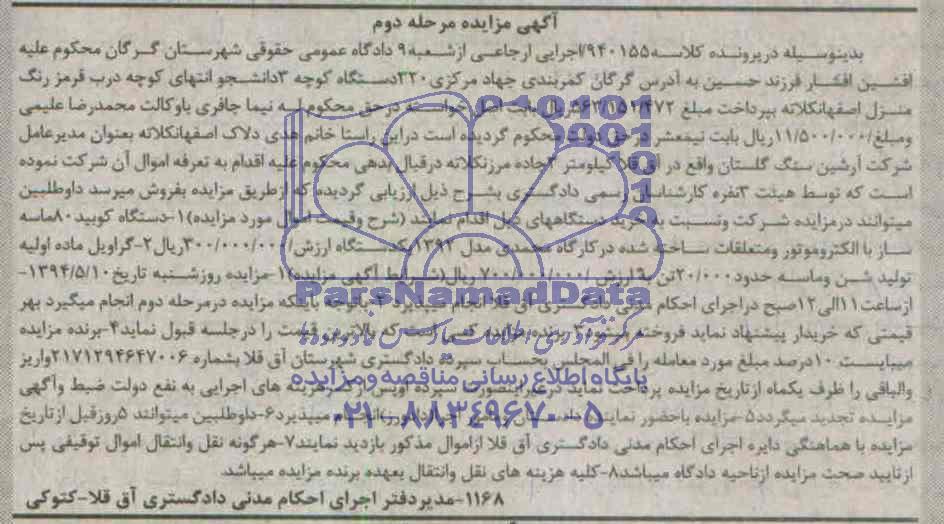 آگهی مزایده مرحله دوم
بدینوسیله درپرونده کلاسه ۹۴۰۱۵۵/اجرایی ارجاعی ازشعبه ۹ دادگاه عمومی حقوقی شهرستان گرگان محکوم علیه
افشین افشار فرزند حسین به آدرس گرگان کمربندی جهاد مرکزی ۳۲۰دستگاه کوچه ۳دانشجو انتهای کوچه درب قرمز رنگ
منزل اصفهانکلاته بپرداخت مبلغ ریال بابت اصل خواسته درحق محکوم له نیما جافری باوکالت محمدرضا علیمی
ومبلغ ۱۱/۵۰۰/۰۰۰ریال بابت نیمعشر درحق دولت محکوم گردیده است دراین راستا خانم هدی دلاک اصفهانکلاته بعنوان مدیرعامل
شرکت آرشین سنگ گلستان واقع در آق قلا کیلومتر جاده مرزنکلاته درقبال بدهی محکوم علیه اقدام به تعرفه اموال آن شرکت نموده
است که توسط هیئت ۳نفره کارشناسان رسمی دادگستری بشرح ذیل ارزیابی گردیده که ازطریق مزایده بفروش میرسد داوطلبین
میتوانند درمزایده شرکت ونسبت به خرید دستگاههای ذیل اقدام نمایند (شرح وقیمت اموال مورد مزایده)۱-دستگاه کوبید۸۰ماسه
ساز با الکتروموتور ومتعلقات ساخته شده درکارگاه محمدی مدل ۱۳۹۲ یکدستگاه ارزش ۳۰۰/۰۰۰/۰۰۰ریال۲-گراویل ماده اولیه
تولید شن وماسه حدود۲۰/۰۰۰تن ارزش ۷۰۰/۰۰۰/۰۰۰ ریال(شرایط آگهی مزایده)۱-مزایده روزشنبه تاریخ۱۳۹۴/۵/۱۰-
ازساعت۱۱الی۱۲صبح دراجرای احکام مدنی دادگستری آق قلا انجام میگیرد۲-باتوجه باینکه مزایده درمرحله دوم انجام میگیرد بهر
قیمتی که خریدار پیشنهاد نماید فروخته میشود۳-برنده مزایده کسی است که بالاترین قیمت را درجلسه قبول نماید۴-برنده مزایده
میبایست ۱۰درصد مبلغ مورد معامله را فی المجلس بحساب سپرده دادگستری شهرستان آق قلا بشماره ۲۱۷۱۲۹۴۶۴۷۰۰۶واریز
والباقی را ظرف یکماه ازتاریخ مزایده پرداخت نماید درغیراینصورت سپرده اوپس ازکسر هزینه های اجرایی به نفع دولت ضبط وآگهی
مزایده تجدید میگردد۵-مزایده باحضور نماینده دادستان انجام میپذیرد۶-داوطلبین میتوانند ۵روزقبل ازتاریخ
مزایده با هماهنگی دایره اجرای احکام مدنی دادگستری آق قلا ازاموال مذکور بازدید نمایند۷-هرگونه نقل وانتقال اموال توقیفی پس
ازتایید صحت مزایده ازناحیه دادگاه میباشد۸-کلیه هزینه های نقل وانتقال بعهده برنده مزایده میباشد
۱۱۶۸-مدیردفتر اجرای احکام مدنی دادگستری آق قلا-کتوکی
ParsNamadData
پایگاه اطلاع رسانی مناقصه ومزایده
۰۲۱-۸۸۳۴۹۶۷۰-۵